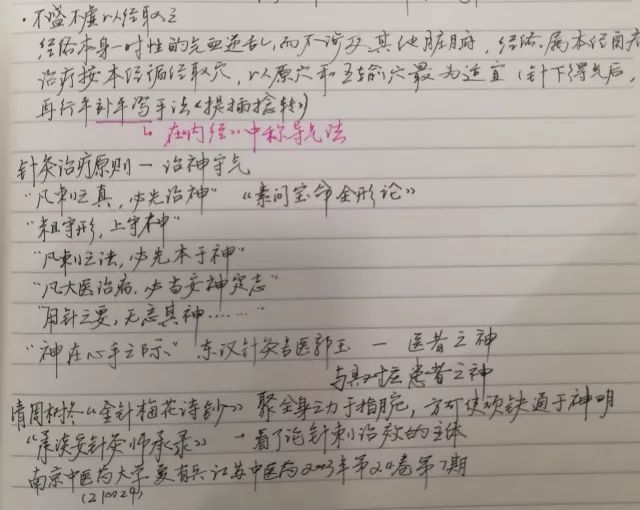 ·不盛不虚以经取之
经络本身一时性的气血逆乱,而不涉及其他脏腑、经络,属本经自病
治疗按本经循经取穴,以原穴和五输穴最为适宜(针下得气后,
再行平补平泻手法《提插捻转》)
↳在《内经》中称导气法
针灸治疗原则一 治神守气
"凡刺之真,必先治神" 《素问宝命全形论》
"粗守形,上守神"
"凡刺之法,必先本于神"
"凡大医治病,必当安神定志"
"用针之要,无忘其神……"
"神在心手之际" 东汉针灸名医郭玉 — 医者之神
与其对应患者之神
清周树冬《金针梅花诗钞》 聚全身之力于指腕,方可使顽铁通于神明
《承淡安针灸师承录》 一看了论针刺治效的主体
南京中医药大学 夏有兵 江苏中医药2003年第24卷第7期
(210029)